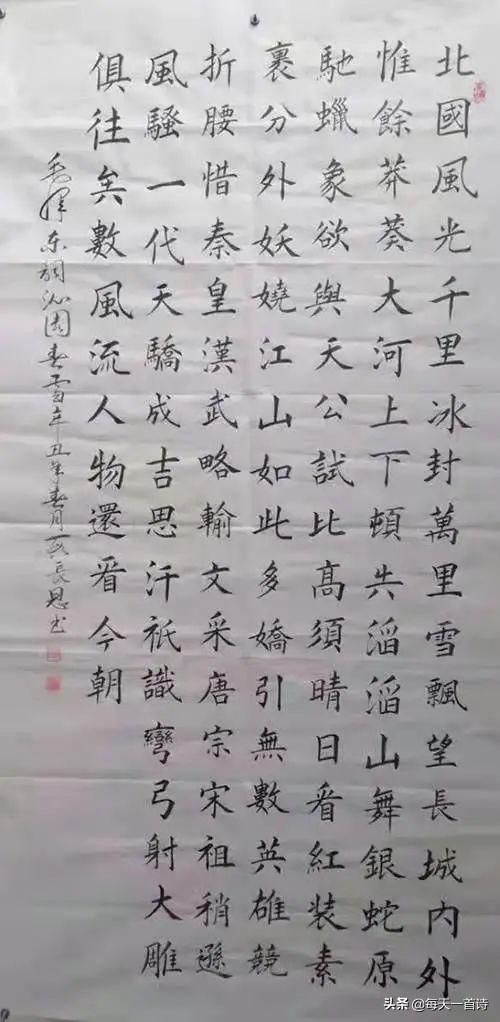 北國風光千里冰封萬里雪飄望長城內外
惟餘莽莽大河上下頓失滔滔山舞銀蛇原
馳蠟象欲與天公試比高須晴日看紅裝素
裹分外妖嬈江山如此多嬌引無數英雄競
折腰惜秦皇漢武略輸文采唐宗宋祖稍遜
風騷一代天驕成吉思汗祇識彎弓射大雕
俱往矣數風流人物還看今朝
毛澤东詞沁園春雪辛丑年春月長恩书
头条 @每天一首诗